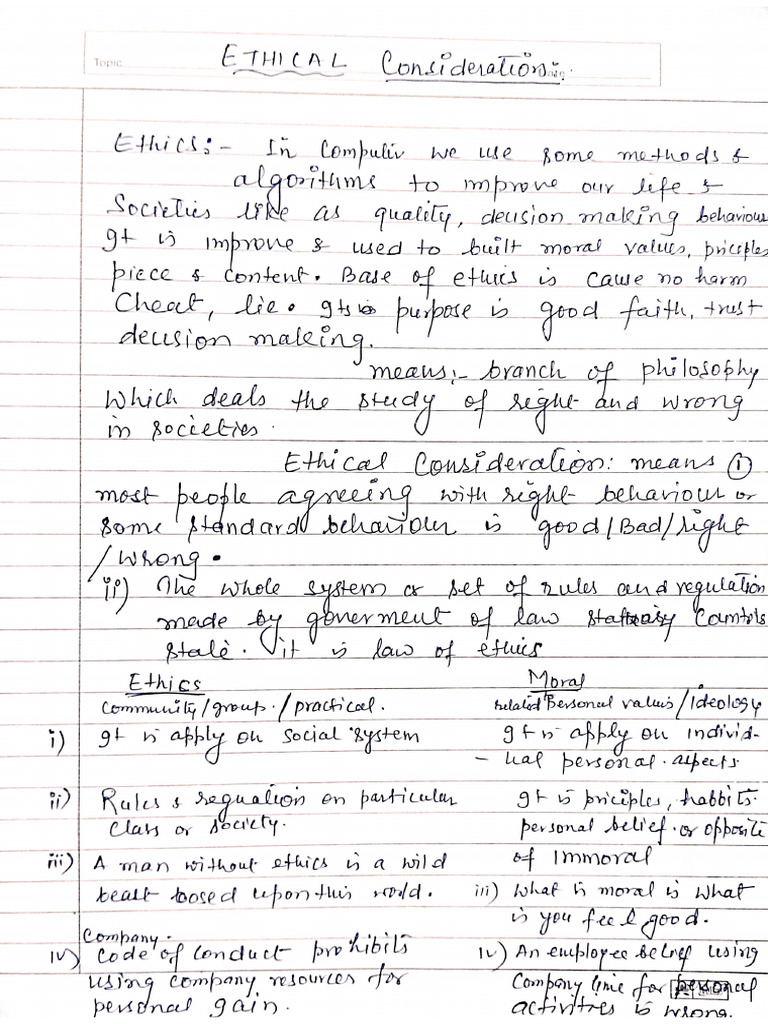 Topic
ETHICAL Consideration:-
Ethics:- In Computiv we use some methods &
algorithms to improve our life &
Societies like as quality, decision making behaviour
It is improve & used to built moral values, priciples
piece & content. Base of ethics is cause no harm
Cheat, lie. Its purpose is good faith, trust
decision making.
means:- branch of philosophy
Which deals the study of right and wrong
in societies.
Ethical Consideration: means ①
most people agreeing with right behaviour or
some standard behaviour is good/Bad/right
/wrong.
ii) The whole system or set of rules and regulation
made by goverment of law Camtrols
state. it is law of ethics
Ethics Moral
Community/group./practical. related Personal values/Ideology
i) It is apply on social system It is apply on individ-
-ual personal aspects.
ii) Rules & reguation on particular It is priciples, habbits.
Class or society. personal belief. or opposite
of Immoral
iii) A man without ethics is a wild
beast loosed upon this world. iii) What is moral is what
is you feel good.
Company.
iv) Code of conduct prohibits iv) An employee belief using
using company resources for Company time for personal
personal gain. activities is wrong.